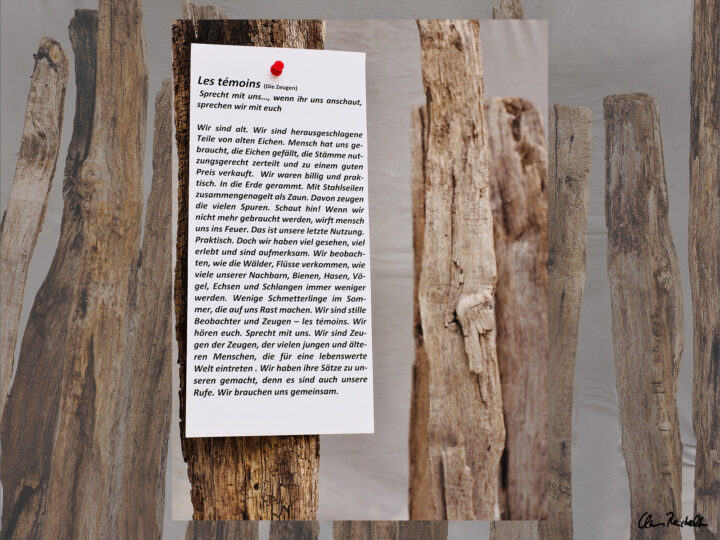 Les témoins (Die Zeugen)
Sprecht mit uns..., wenn ihr uns anschaut,
sprechen wir mit euch
Wir sind alt. Wir sind herausgeschlagene
Teile von alten Eichen. Mensch hat uns ge-
braucht, die Eichen gefällt, die Stämme nut-
zungsgerecht zerteilt und zu einem guten
Preis verkauft. Wir waren billig und prak-
tisch. In die Erde gerammt. Mit Stahlseilen
zusammengenagelt als Zaun. Davon zeugen
die vielen Spuren. Schaut hin! Wenn wir
nicht mehr gebraucht werden, wirft mensch
uns ins Feuer. Das ist unsere letzte Nutzung.
Praktisch. Doch wir haben viel gesehen, viel
erlebt und sind aufmerksam. Wir beobach-
ten, wie die Wälder, Flüsse verkommen, wie
viele unserer Nachbarn, Bienen, Hasen, Vö-
gel, Echsen und Schlangen immer weniger
werden. Wenige Schmetterlinge im Som-
mer, die auf uns Rast machen. Wir sind stille
Beobachter und Zeugen – les témoins. Wir
hören euch. Sprecht mit uns. Wir sind Zeu-
gen der Zeugen, der vielen jungen und älte-
ren Menschen, die für eine lebenswerte
Welt eintreten . Wir haben ihre Sätze zu un-
seren gemacht, denn es sind auch unsere
Rufe. Wir brauchen uns gemeinsam.